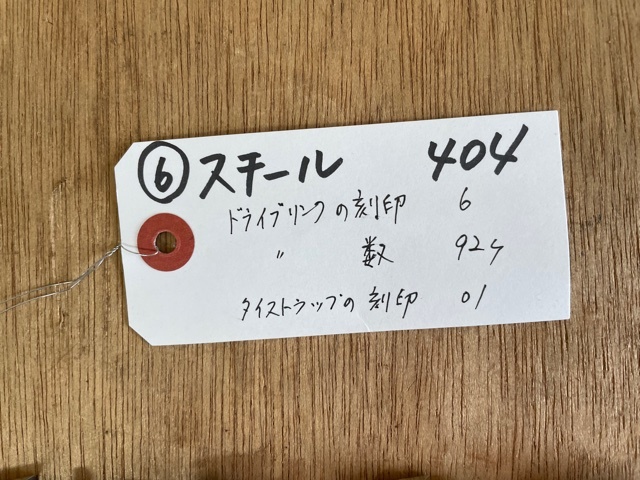 ⑥スチール 404
ドライブリンクの刻印 6
〃 数 92ケ
タイストラップの刻印 01